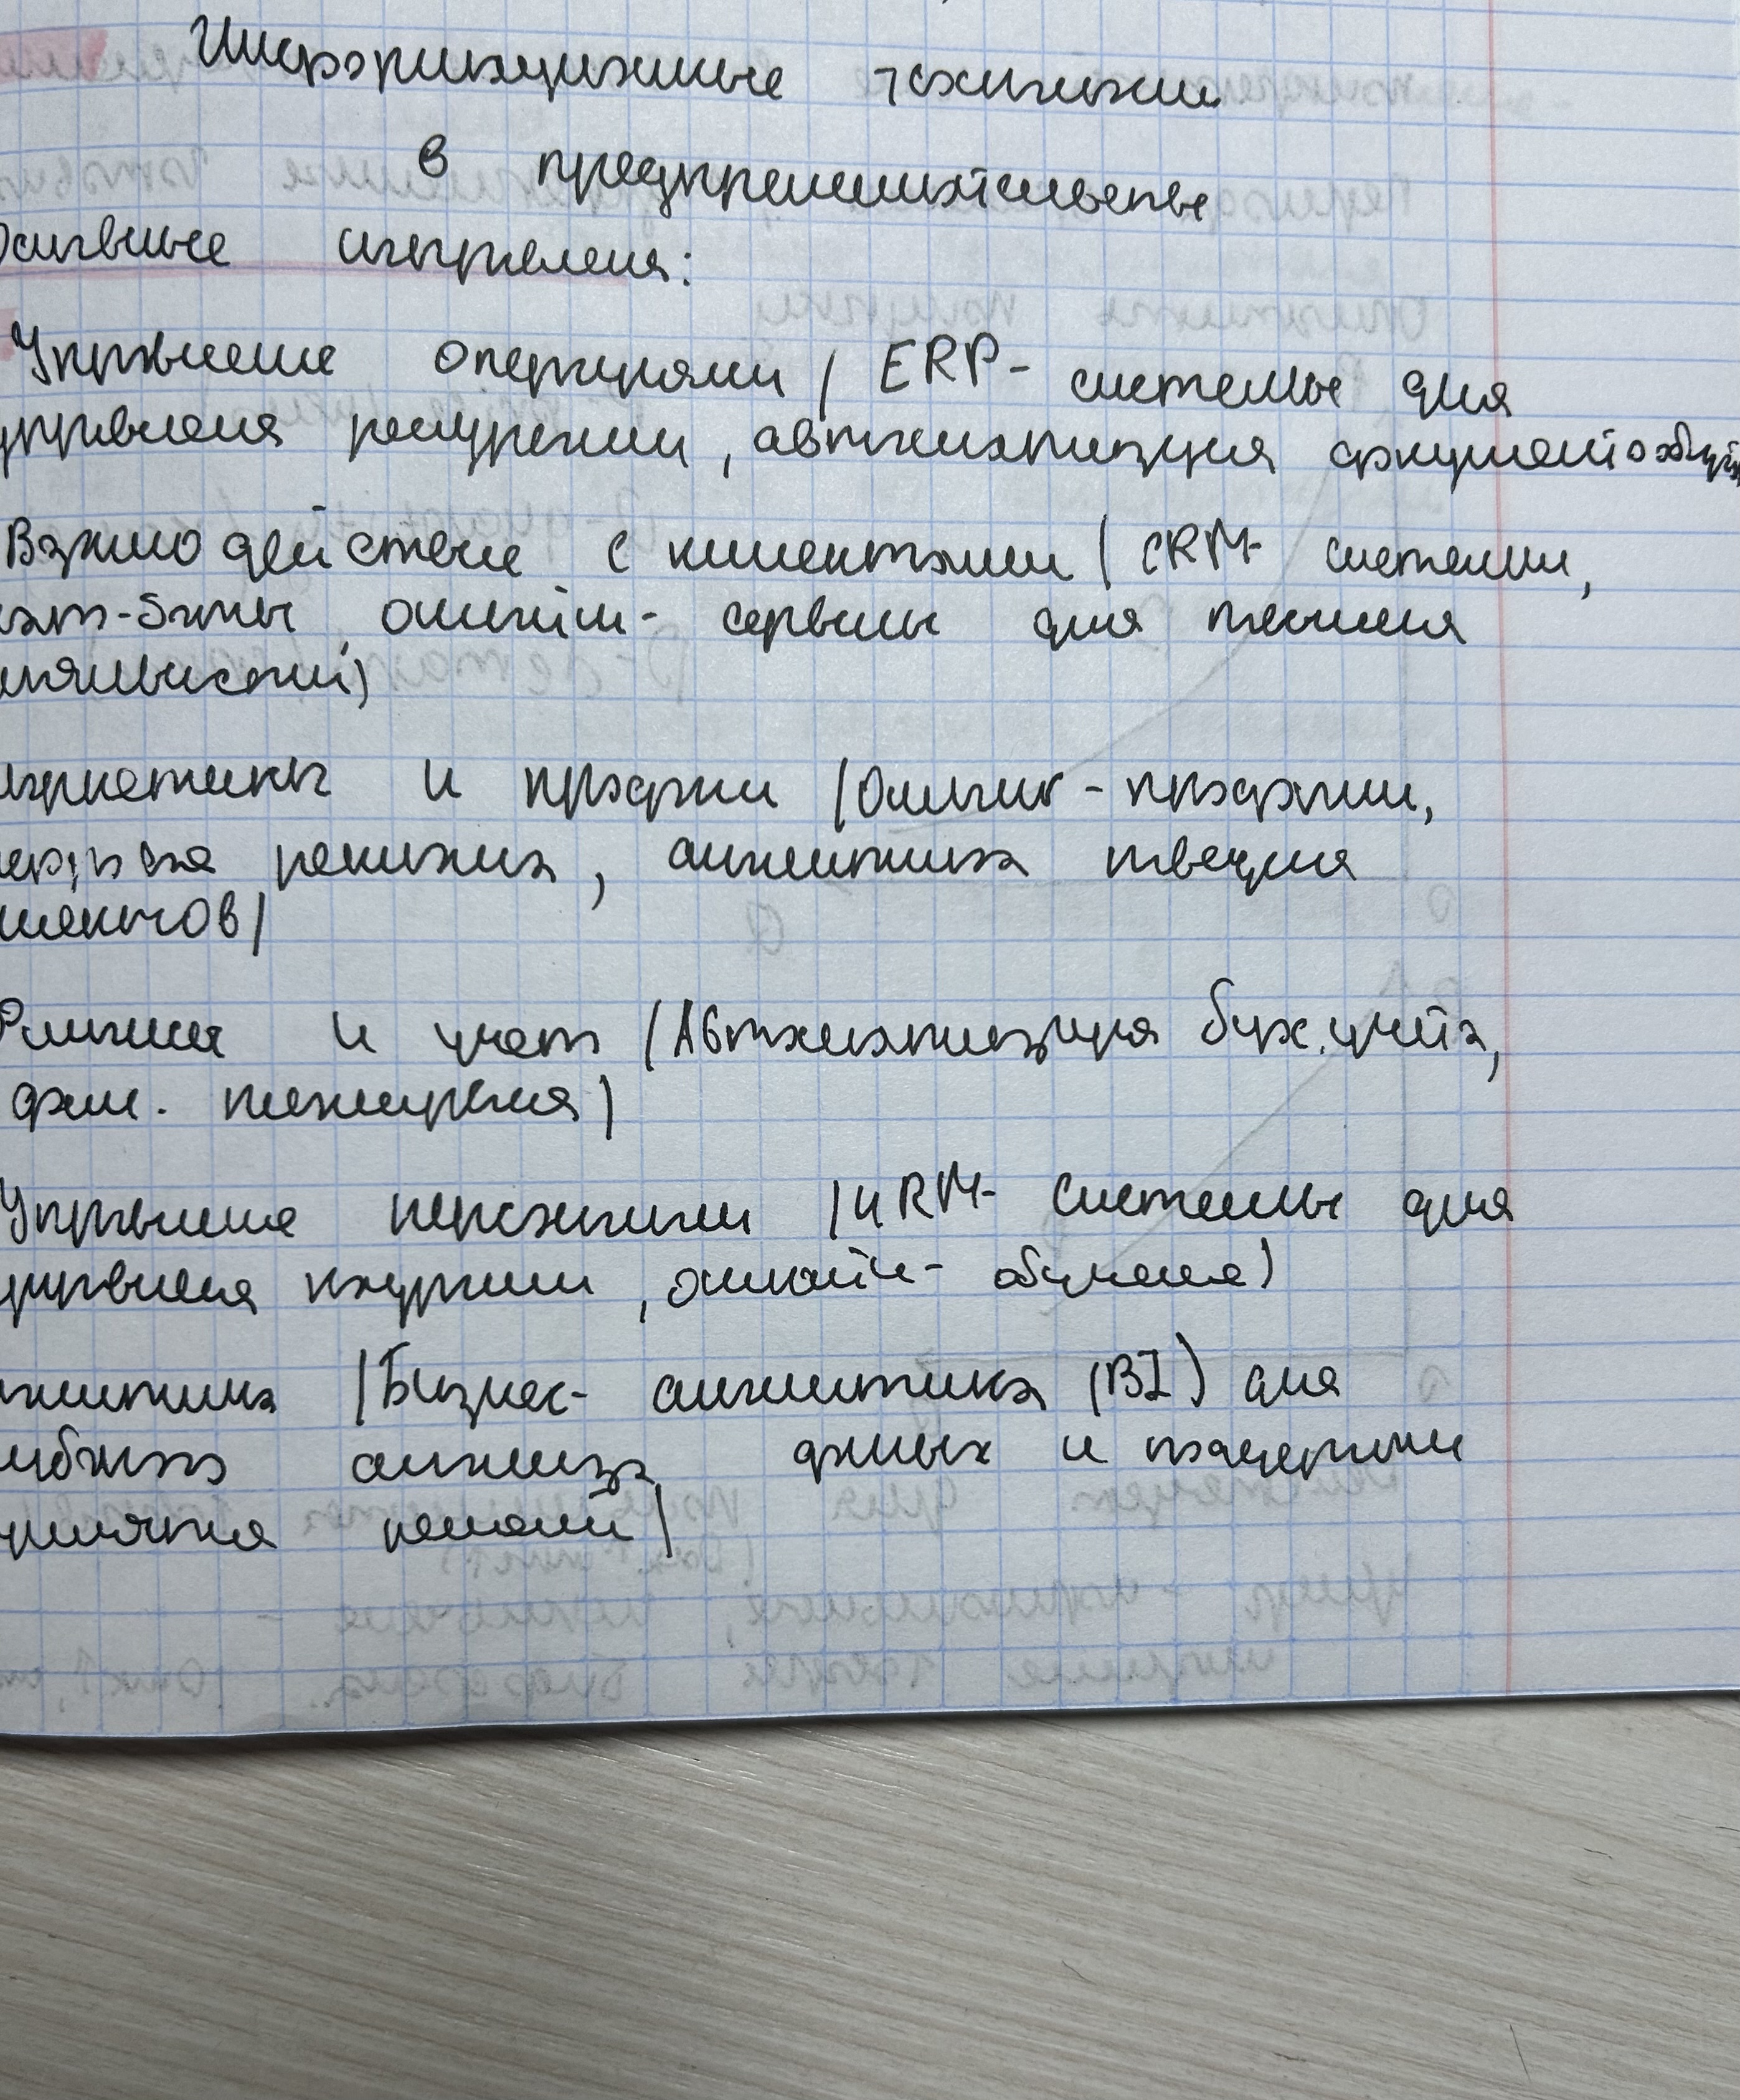 Информационные технологии
в предпринимательстве
Основные направления:
Управление операциями / ERP- системы для
управления ресурсами, автоматизация документооборота
Взаимодействие с клиентами / CRM- системы,
чат-боты, онлайн- сервисы для
лояльности)
маркетинг и продажи / Онлайн - продажи,
реклама, аналитика поведения
клиентов /
Финансы и учет / Автоматизация бух. учёта,
фин. планирования)
Управление персоналом / HRM- системы для
управления кадрами, онлайн- обучение)
аналитика / Бизнес- аналитика (BI) для
анализа данных и поддержки
принятия решений /